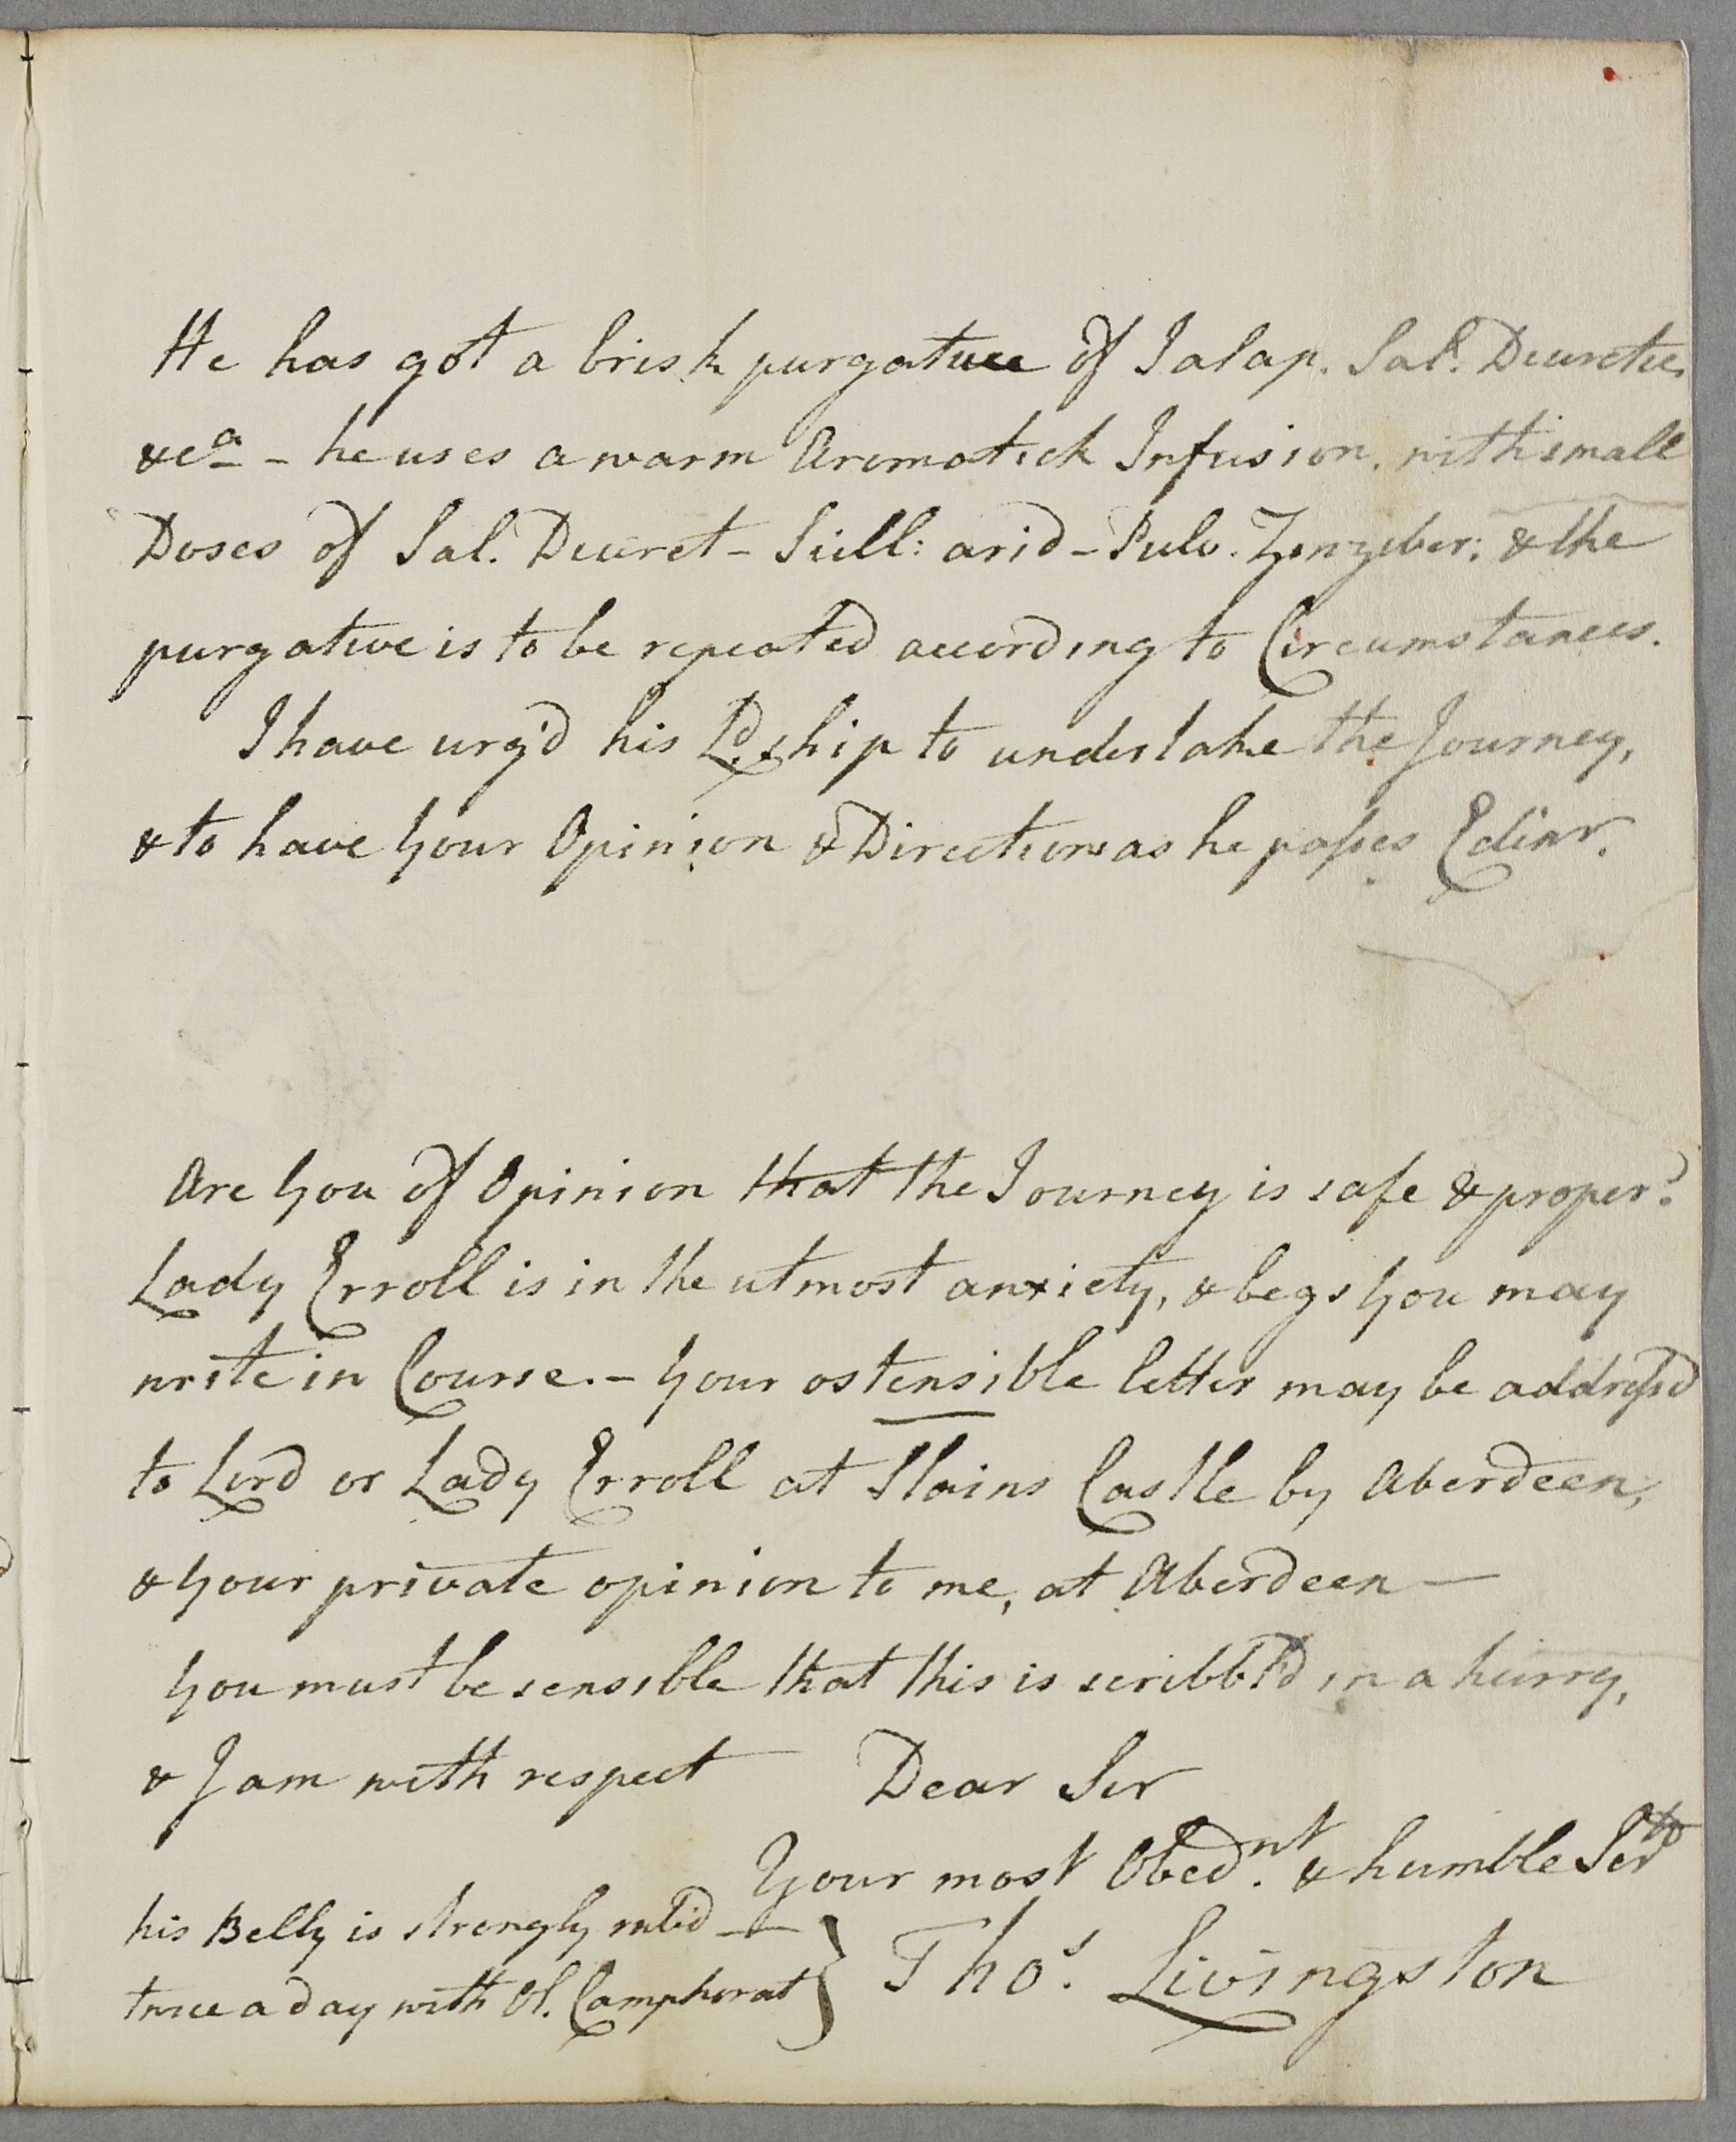 He has got a brisk purgative of Jalap. Sal. Diuretic.
&ca - he uses a warm Aromatick Infusion, with small
Doses of Sal. Diuret - Scill: arid - Pulv. Zingiber: & the
purgative is to be repeated according to Circumstances.
I have urg'd his Ldship to undertake the Journey,
& to have your Opinion & Directions as he passes Edinr.
Are you of Opinion that the Journey is safe & proper?
Lady Erroll is in the utmost anxiety, & begs you may
write in Course. - your ostensible letter may be address'd
to Lord or Lady Erroll at Slains Castle by Aberdeen,
& your private opinion to me, at Aberdeen —
you must be sensible that this is scribbl'd in a hurry,
& I am with respect Dear Sir
Your most Obednt. & humble Servt
his Belly is strongly rub'd —
twice a day with Ol. Camphorat } Thos. Livingston